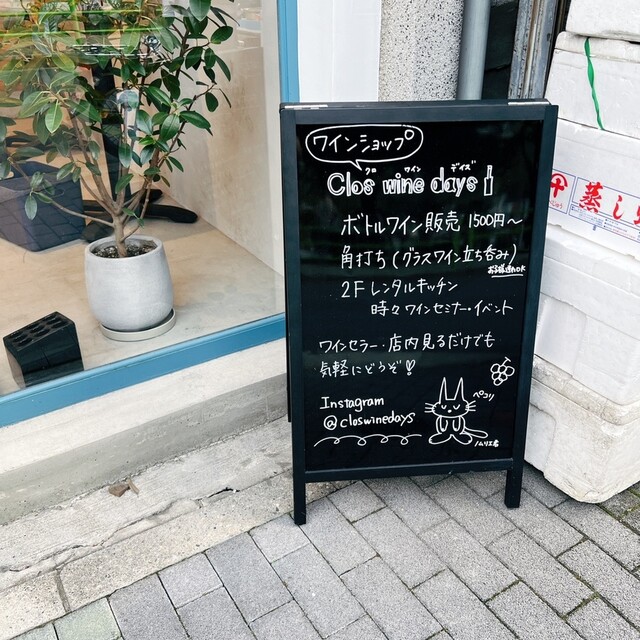 ワインショップ
クロ ワイン デイズ
Clos wine days
ボトルワイン販売 1500円～
角打ち(グラスワイン立ち呑み)
お子様連れOK
2F レンタルキッチン
時々ワインセミナー・イベント
ワインセラー・店内見るだけでも
気軽にどうぞ♡
ペコリ
Instagram
@closwinedays
蒸し